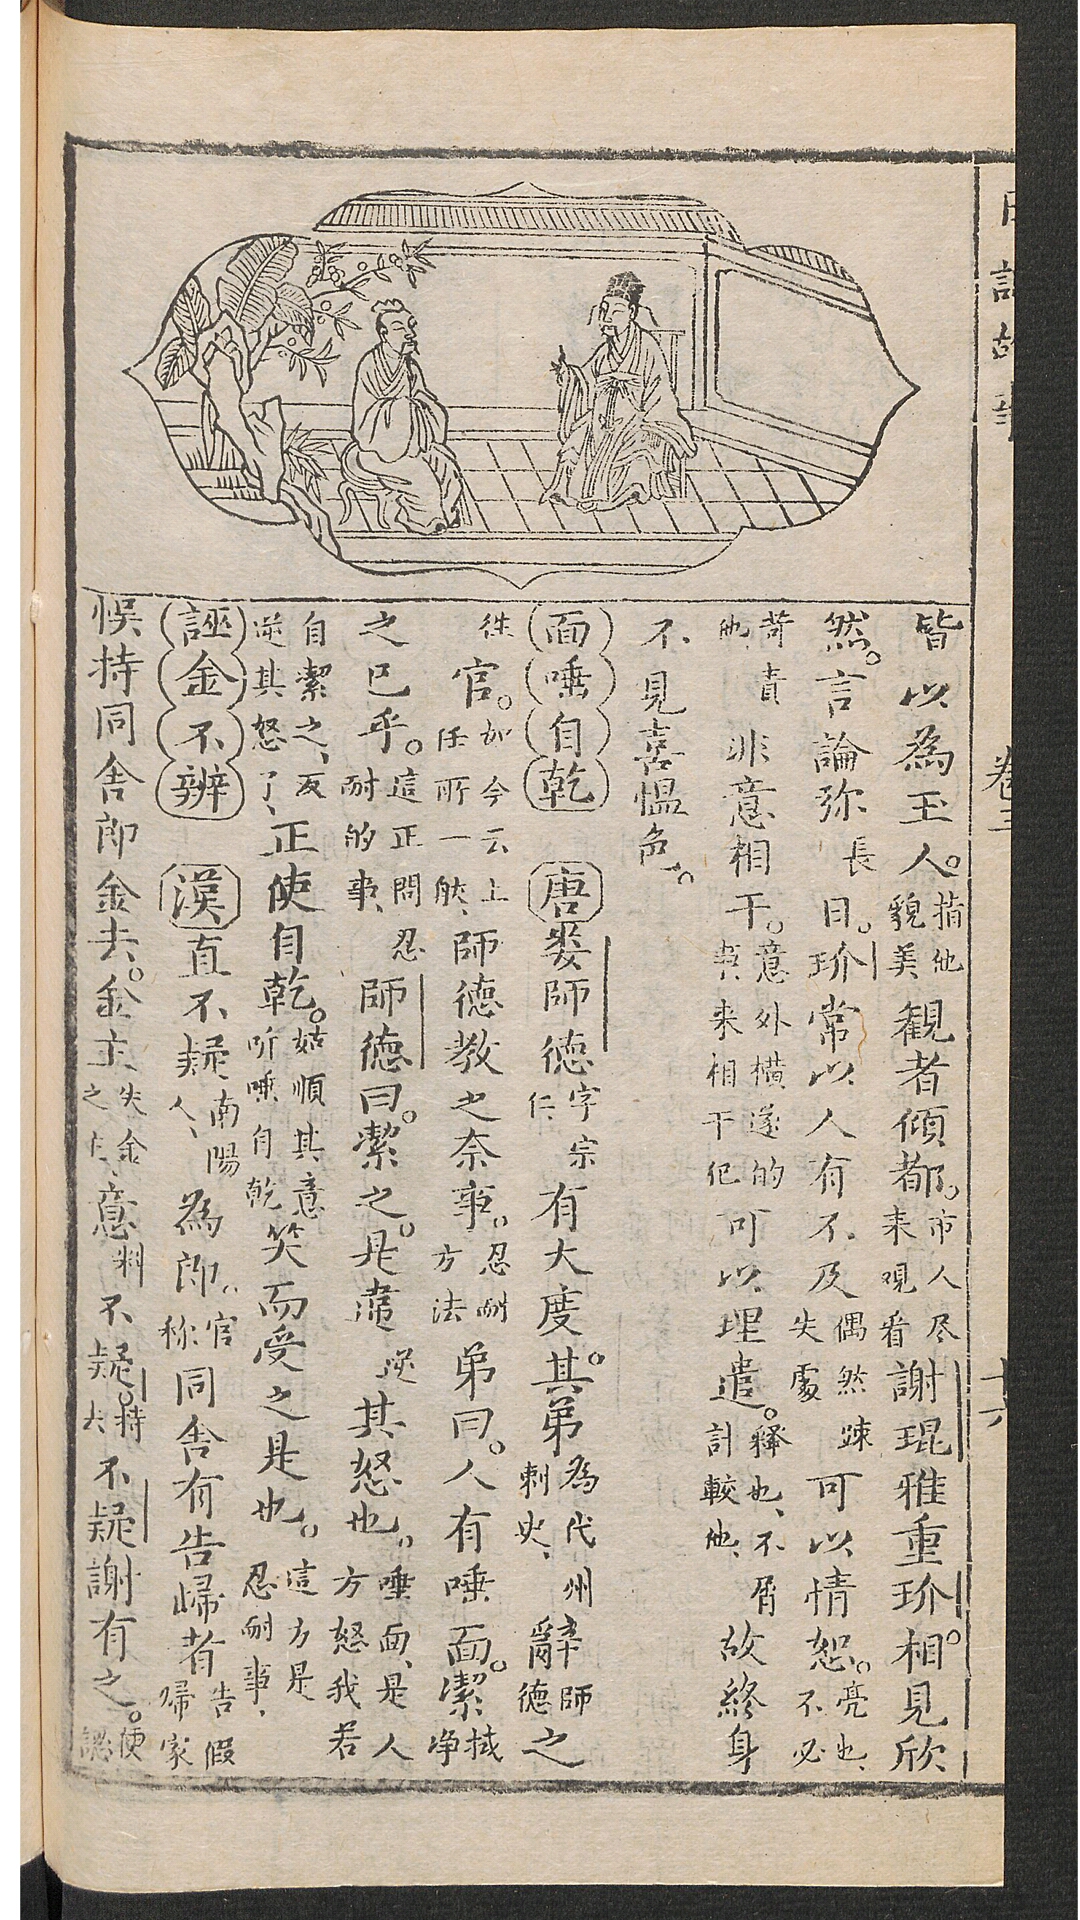 日記故事 卷三 十六
皆以為玉人。指他貌美観者傾都。市人尽来观看謝琨雅重玠。相見欣
然。言論弥長日。玠常以人有不及偶然踈失處可以情恕。亮也、不必
苛責他非意相干。意外横逆的事、来相干犯可以理遣。释也、不屑計較他、故終身
不見喜愠色。
面唾自乾 唐娄師德字宗仁、有大度。其弟為代州刺史、辭師德之
徃官。如今云上任所一般、師德教之奈事。忍耐方法弟曰。人有唾面。潔拭净
之巳乎。這正問忍耐的事、師德曰。潔之。是違逆其怒也。唾面、是人方怒我若
自潔之、反逆其怒了、正使自乾。姑順其意听唾自乾笑而受之是也。這方是忍耐事、
誣金不辨 漢直不疑南陽人、為郎。官称同舍有告歸者告假帰家
悞持同舍郎金去。金主失金之主、意料不疑。持去不疑謝有之。便認